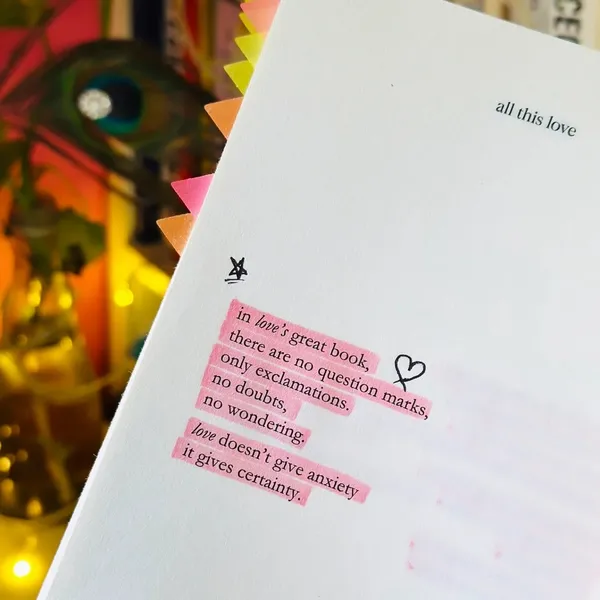 all this love
in love's great book,
there are no question marks,
only exclamations.
no doubts,
no wondering.
love doesn't give anxiety
it gives certainty.